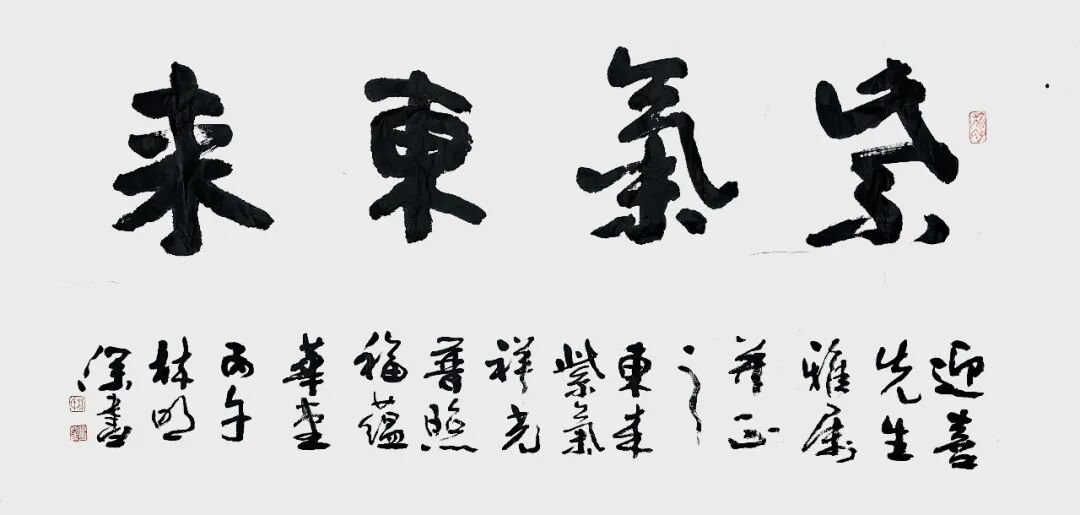 紫氣東来
迎
先生
雅属
正
之
東来
紫氣
祥光
普照
福蕴
華堂
丙午
林明
深書